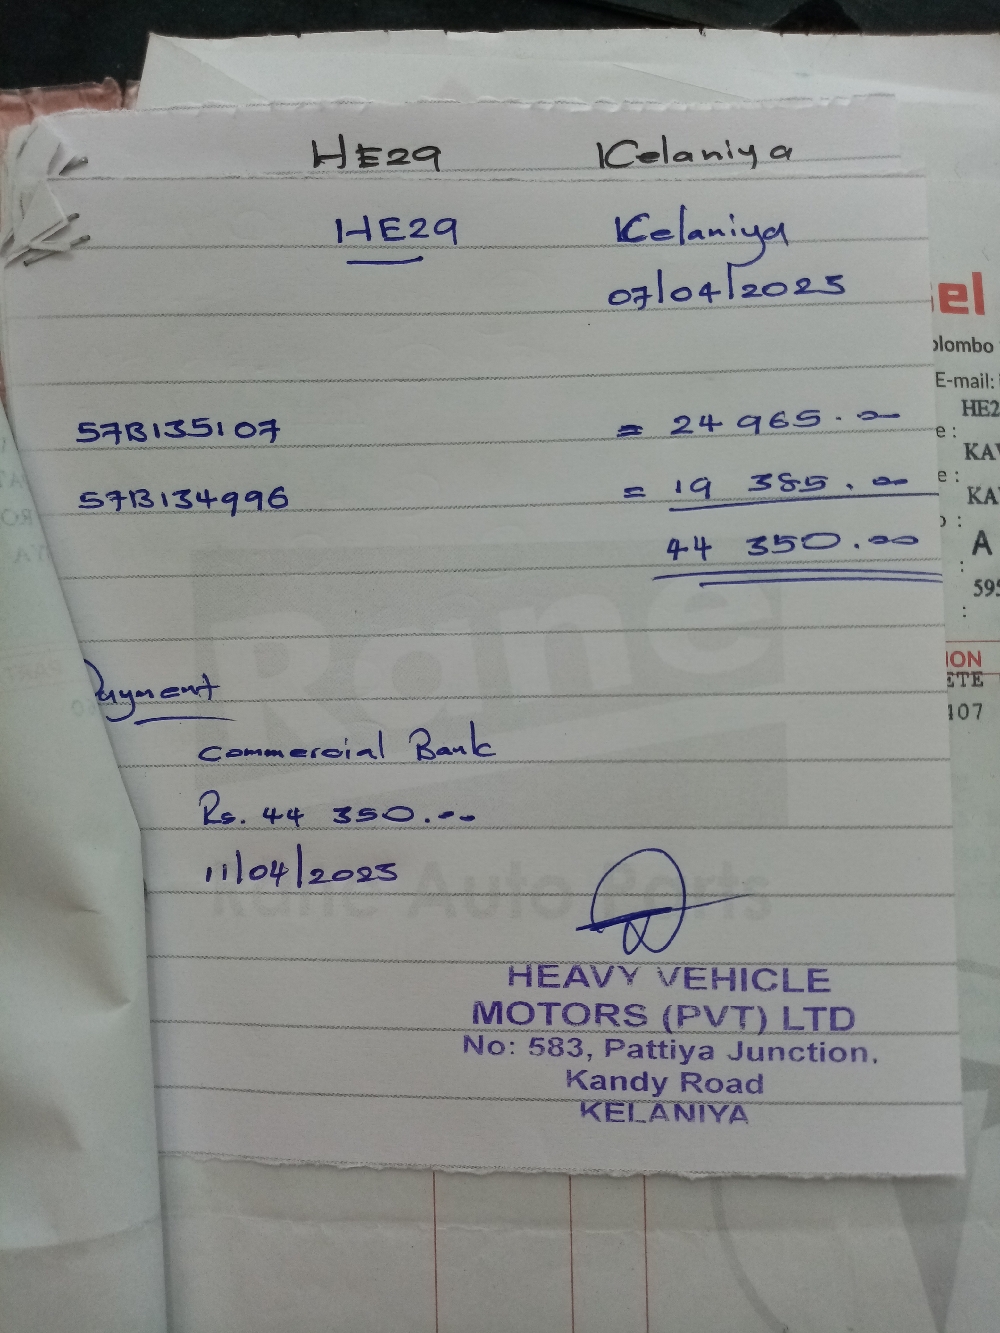 HE29 Kelaniya
HE29 Kelaniya
07/04/2025
57B135107 = 24 965.00
57B134996 = 19 385.00
44 350.00
Payment
Commercial Bank
Rs. 44 350.00
11/04/2025
HEAVY VEHICLE
MOTORS (PVT) LTD
No: 583, Pattiya Junction,
Kandy Road
KELANIYA
Rane
Rane Auto Parts
el
olombo
E-mail:
HE2
e :
KAV
e :
KA
:
A
:
595
:
ION
ETE
107